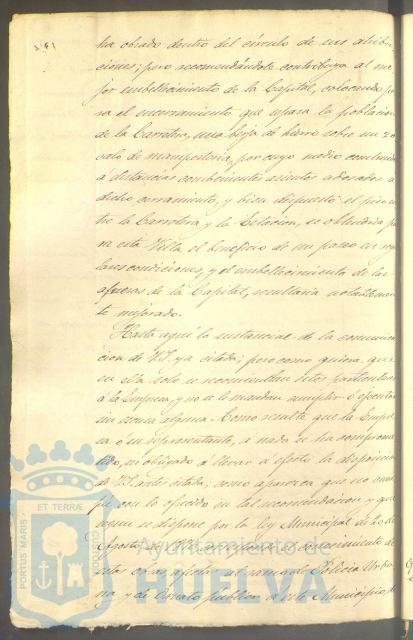 ha obrado dentro del círculo de sus atribu-
ciones; pero recomendándole contribuya al me-
jor embellecimiento de la Capital, colocando pa-
ra el encerramiento que separa la población
de la Carretera, una berja de hierro sobre un zo-
calo de mampostería, por cuyo medio construido
a distancias combenientes asientos adosados a
dicho cerramiento, y bien dispuesto el piso en-
tre la Carretera y la Estación, se obtendría pa-
ra esta Villa el beneficio de un paseo en regu-
lares condiciones, y el embellecimiento de las
afueras de la Capital, resultaría notablemen-
te mejorado.
Hasta aquí lo sustancial de la comunica-
cion de V.S. ya citada; pero como quiera que
en ella solo se recomiendan estos particulares
á la Empresa, y no se le mandan cumplir ó ejecutar
en manera alguna. Como resulta que la Empre-
sa ó su representante, á nada se ha comprome-
tido, ni obligado á llevar á efecto la disposicion
de V.S. ántes citada; como aparece que no cum-
ple con lo ofrecido en tal recomendacion y que
segun se dispone por la ley Municipal de 20 de
Agosto
esta en
na, y de Ornato público a este Municipio
PORTUS MARIS
ET TERRÆ
CUSTODIA
Ayuntamiento de
HUELVA